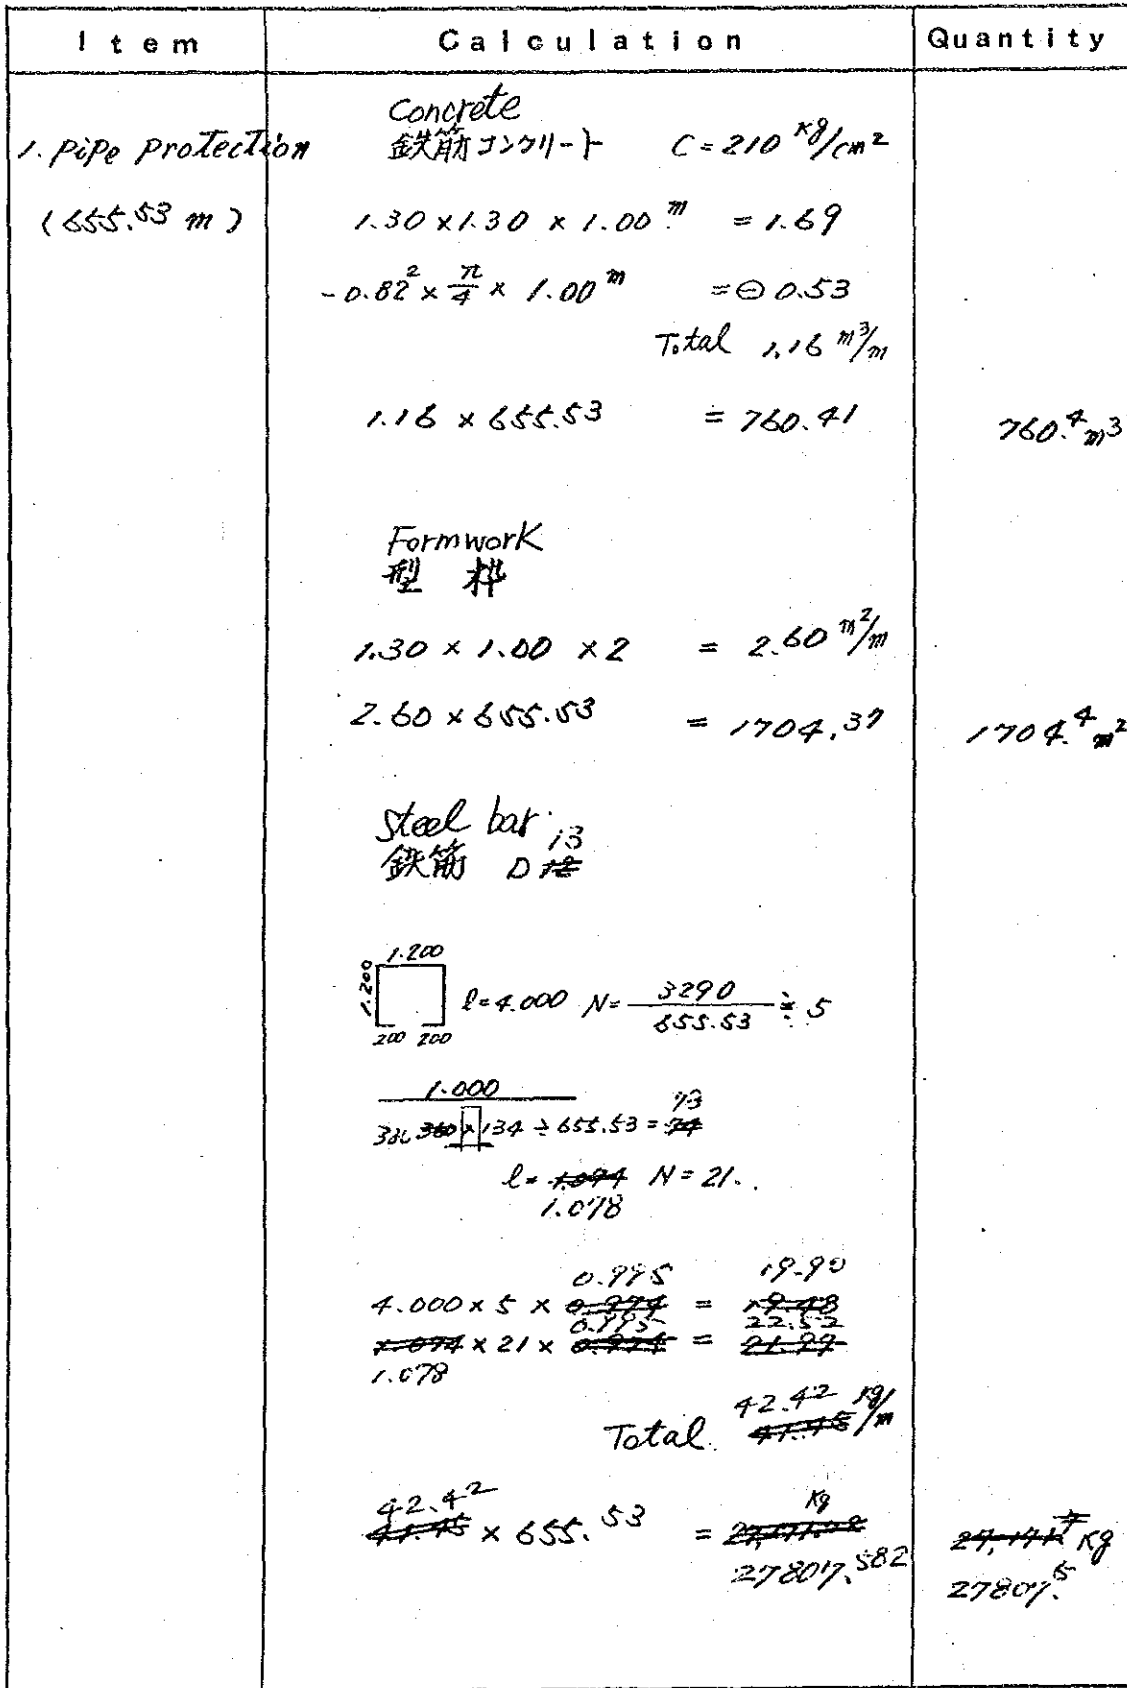 Item Calculation Quantity
Concrete
1. Pipe Protection 鉄筋コンクリート C = 210 kg/cm²
(655.53 m) 1.30 × 1.30 × 1.00 m = 1.69
-0.82² × π/4 × 1.00 m = ⊖ 0.53
Total 1.16 m³/m
1.16 × 655.53 = 760.41 760.4 m³
Formwork
型 枠
1.30 × 1.00 × 2 = 2.60 m²/m
2.60 × 655.53 = 1704.37 1704.4 m²
Steel bar
鉄筋 D 13
1.200
1.200
l = 4.000 N = 3290/655.53 ≒ 5
200 200
1.000
134 ÷ 655.53 = 73
l = 1.078 N = 21
4.000 × 5 × 0.995 = 19.90
1.078 × 21 × 0.995 = 22.52
Total 42.42 kg/m
42.42 × 655.53 = 27807.582 kg 27807.5 kg